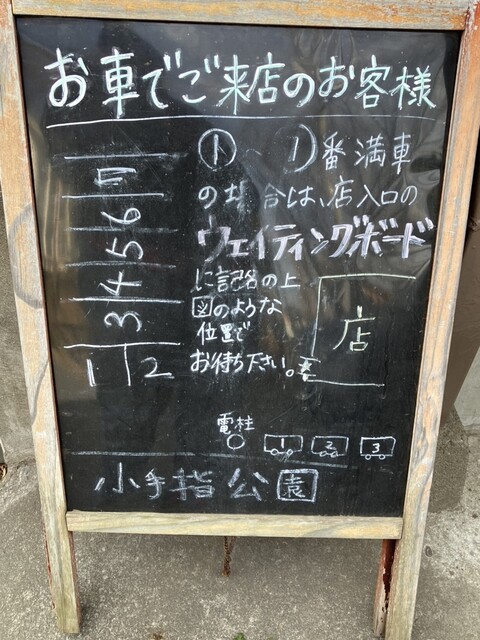 お車でご来店のお客様
①〜⑦番満車
の場合は、店入口の
ウェイティングボード
に記名の上
図のような
位置で
お待ち下さい。
7
6
5
4
3
1 2
店
電柱
1 2 3
小手指公園